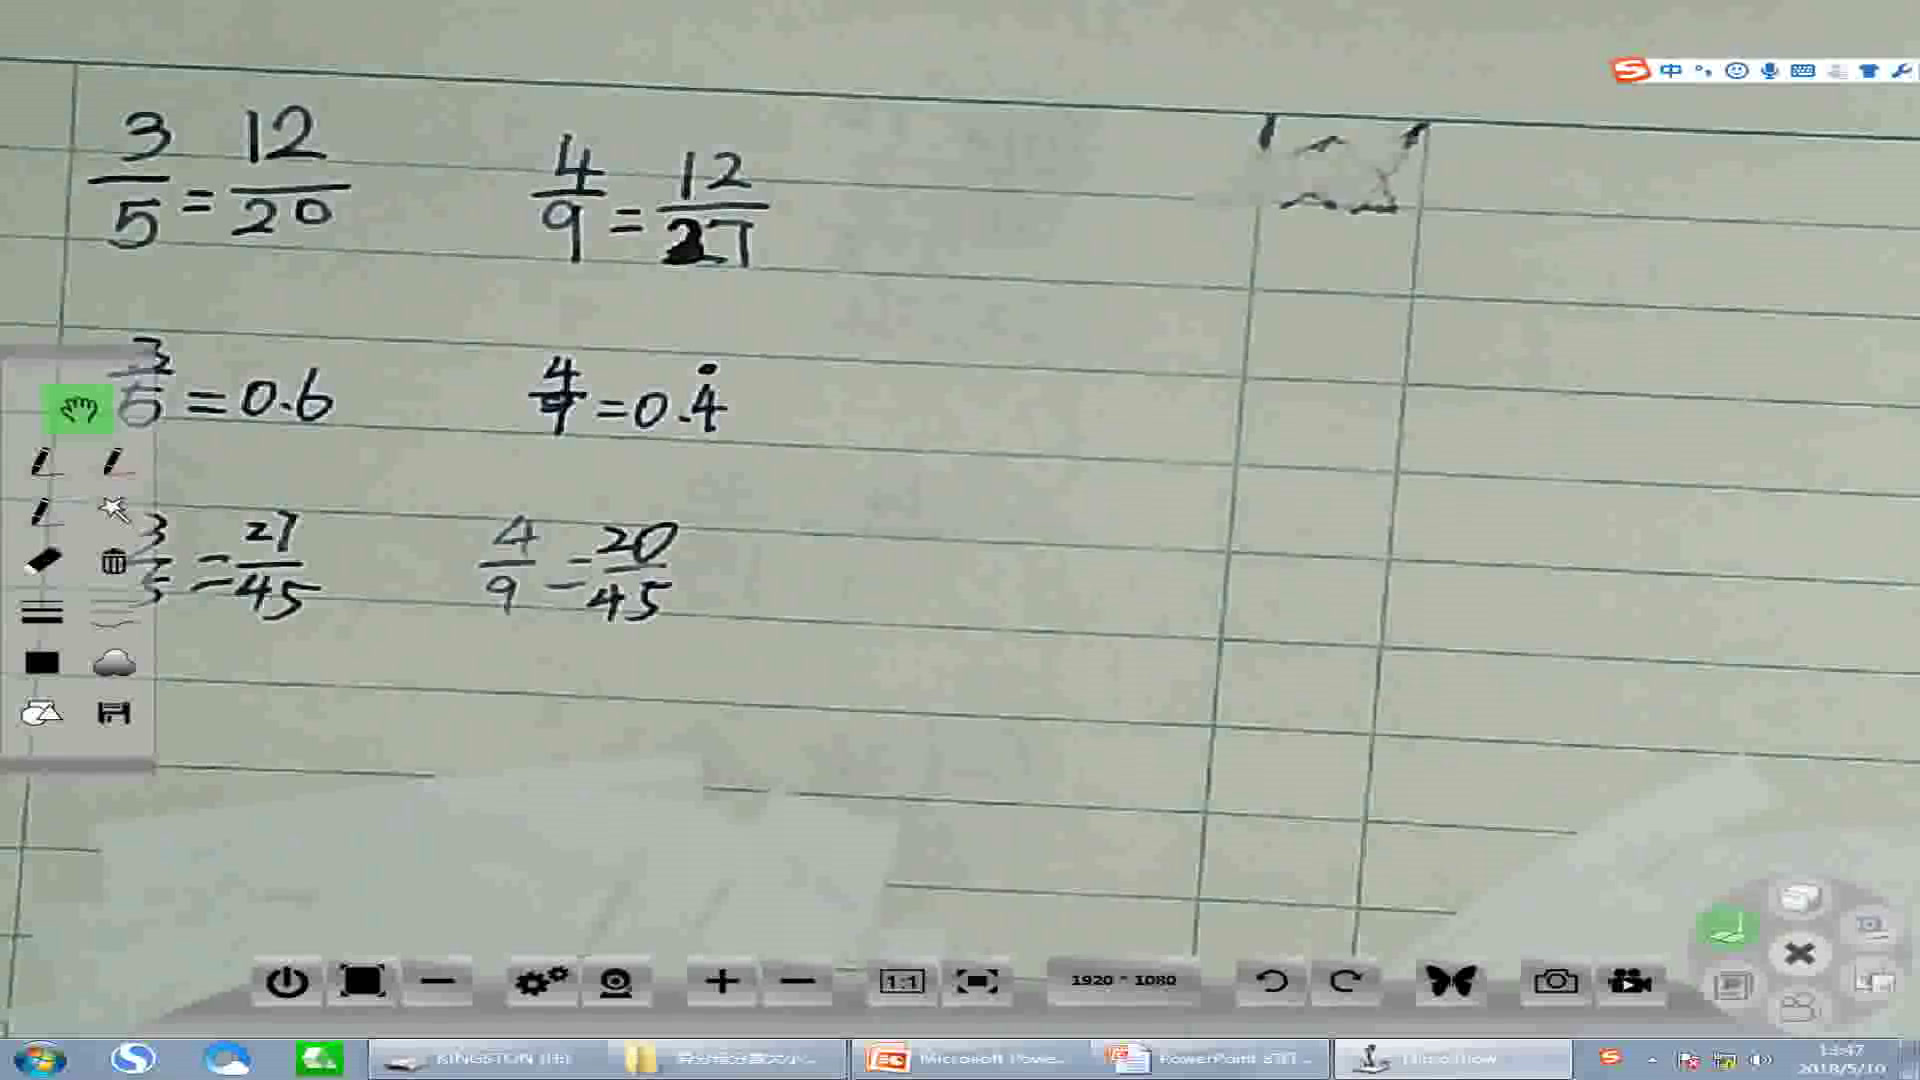 中
3/5 = 12/20 4/9 = 12/27
3/5 = 0.6 4/9 = 0.4̇
3/5 = 27/45 4/9 = 20/45
1:1 1920 * 1080
KINGSTON (H:) Microsoft Powe... PowerPoint 幻灯...
13:47
2018/5/10